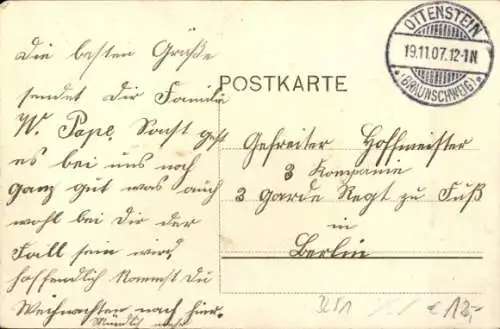 Die besten Grüße
sendet Dir Familie
W. Pape. Sonst geht
es bei uns noch
ganz gut was auch
wohl bei Dir der
Fall sein wird
hoffendlich kommst Du
Weihnachten nach hier.
Mündlich mehr
POSTKARTE
OTTENSTEIN
19.11.07.12-1N
(BRAUNSCHWEIG)
Gefreiter Hoffmeister
3 Kompanie
3 Garde Regt zu Fuß
in
Berlin
3251
€ 13,-